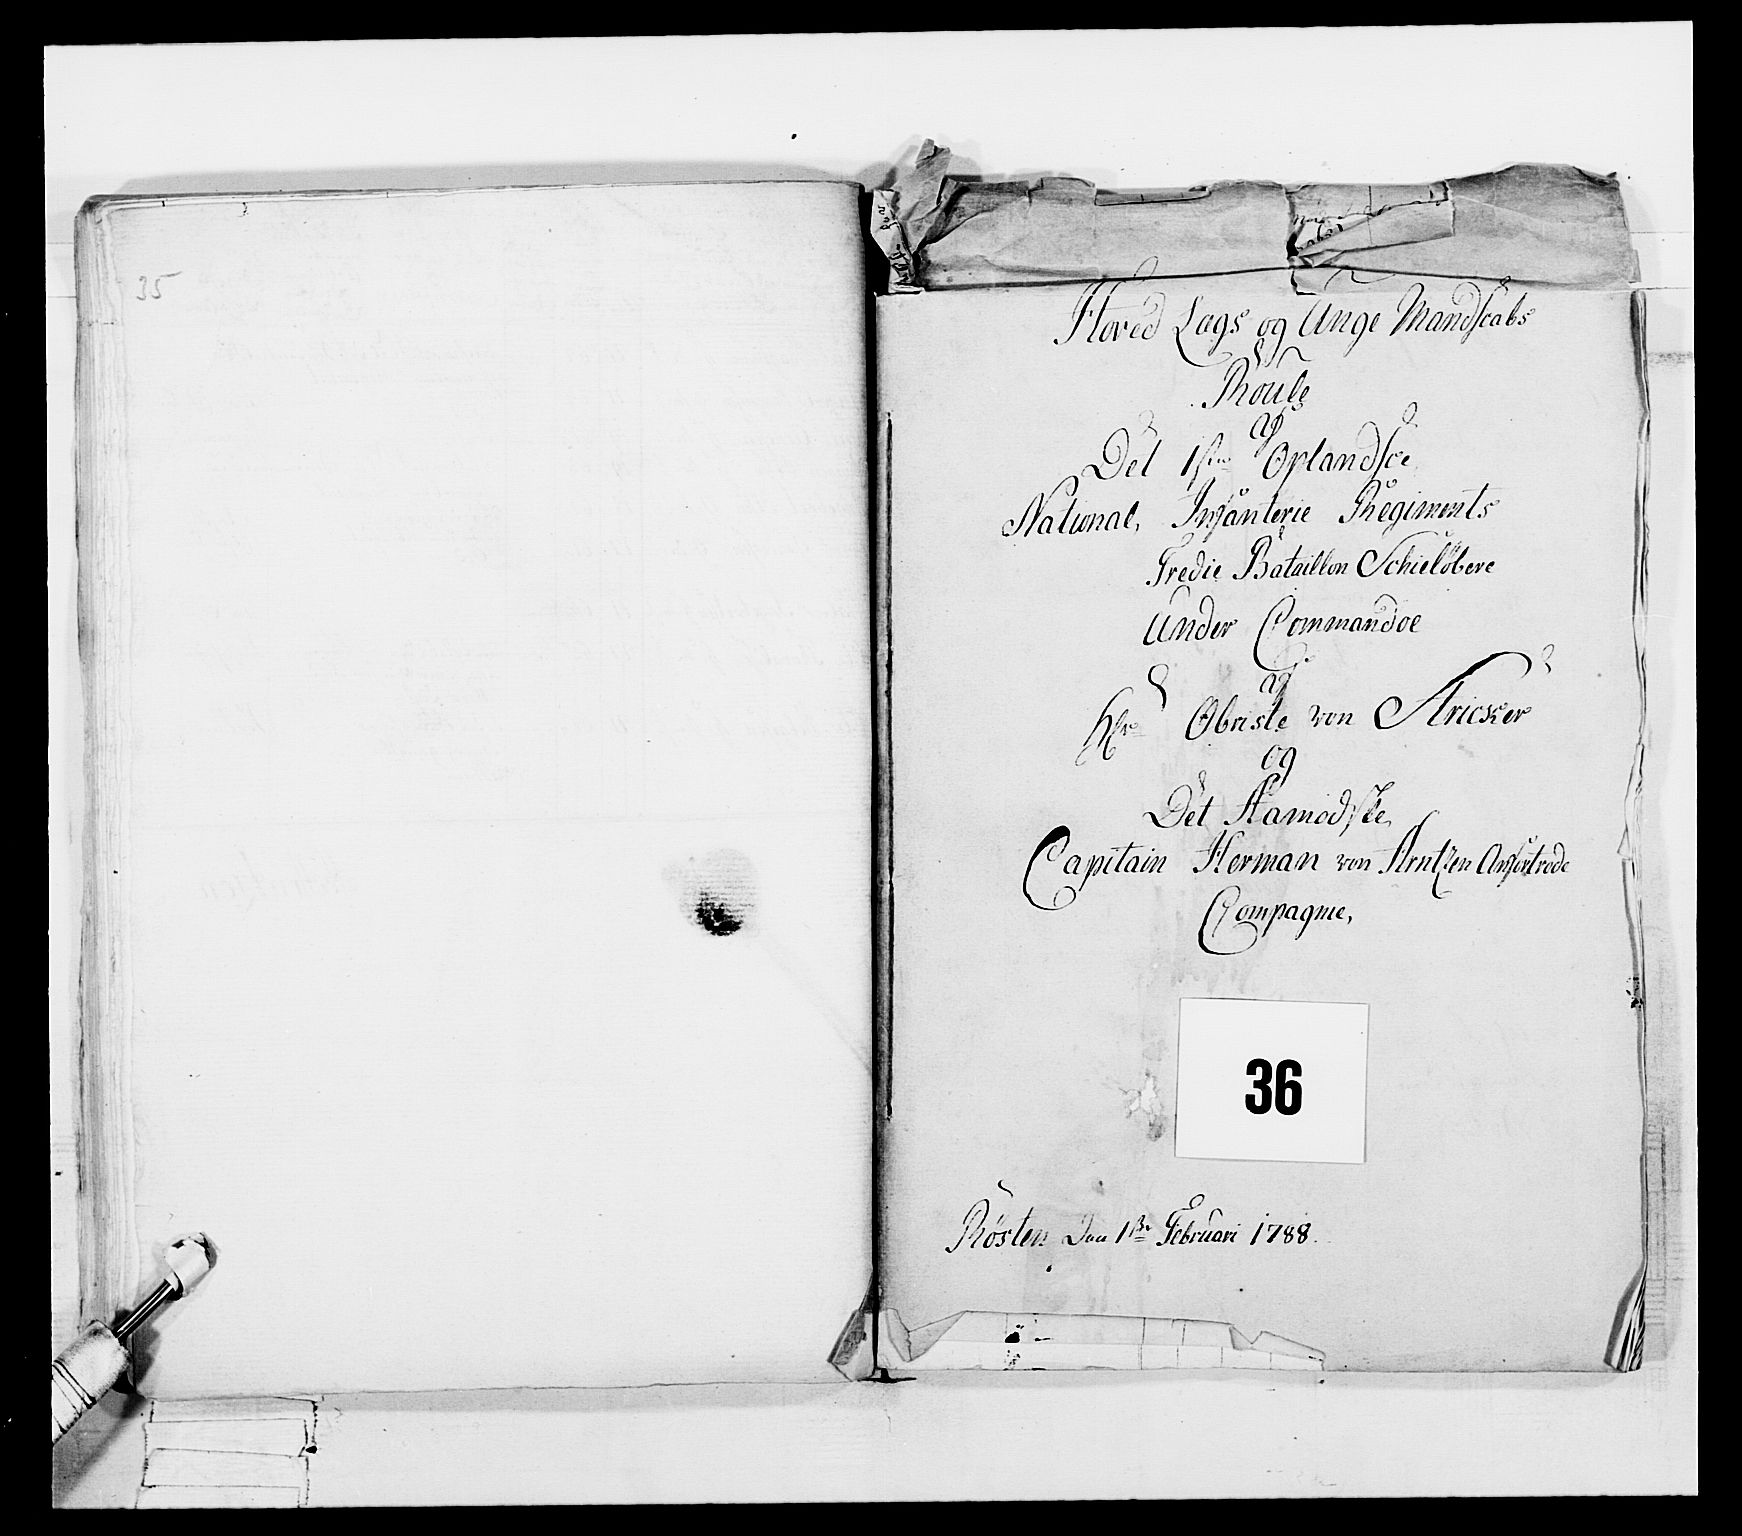 35
Hoved Lags og Unge Mandscabs
Roule
af
Det 1ste Oplandsce
National, Infanterie Regiments
Tredie Bataillon Schielöbere
Under Commandoe
af
Hr Obriste von Stricker
og
Det Aamodske
Capitain Herman von Arntzen Anfortrode
Compagnie,
36
Rösten Den 1te Februari 1788.